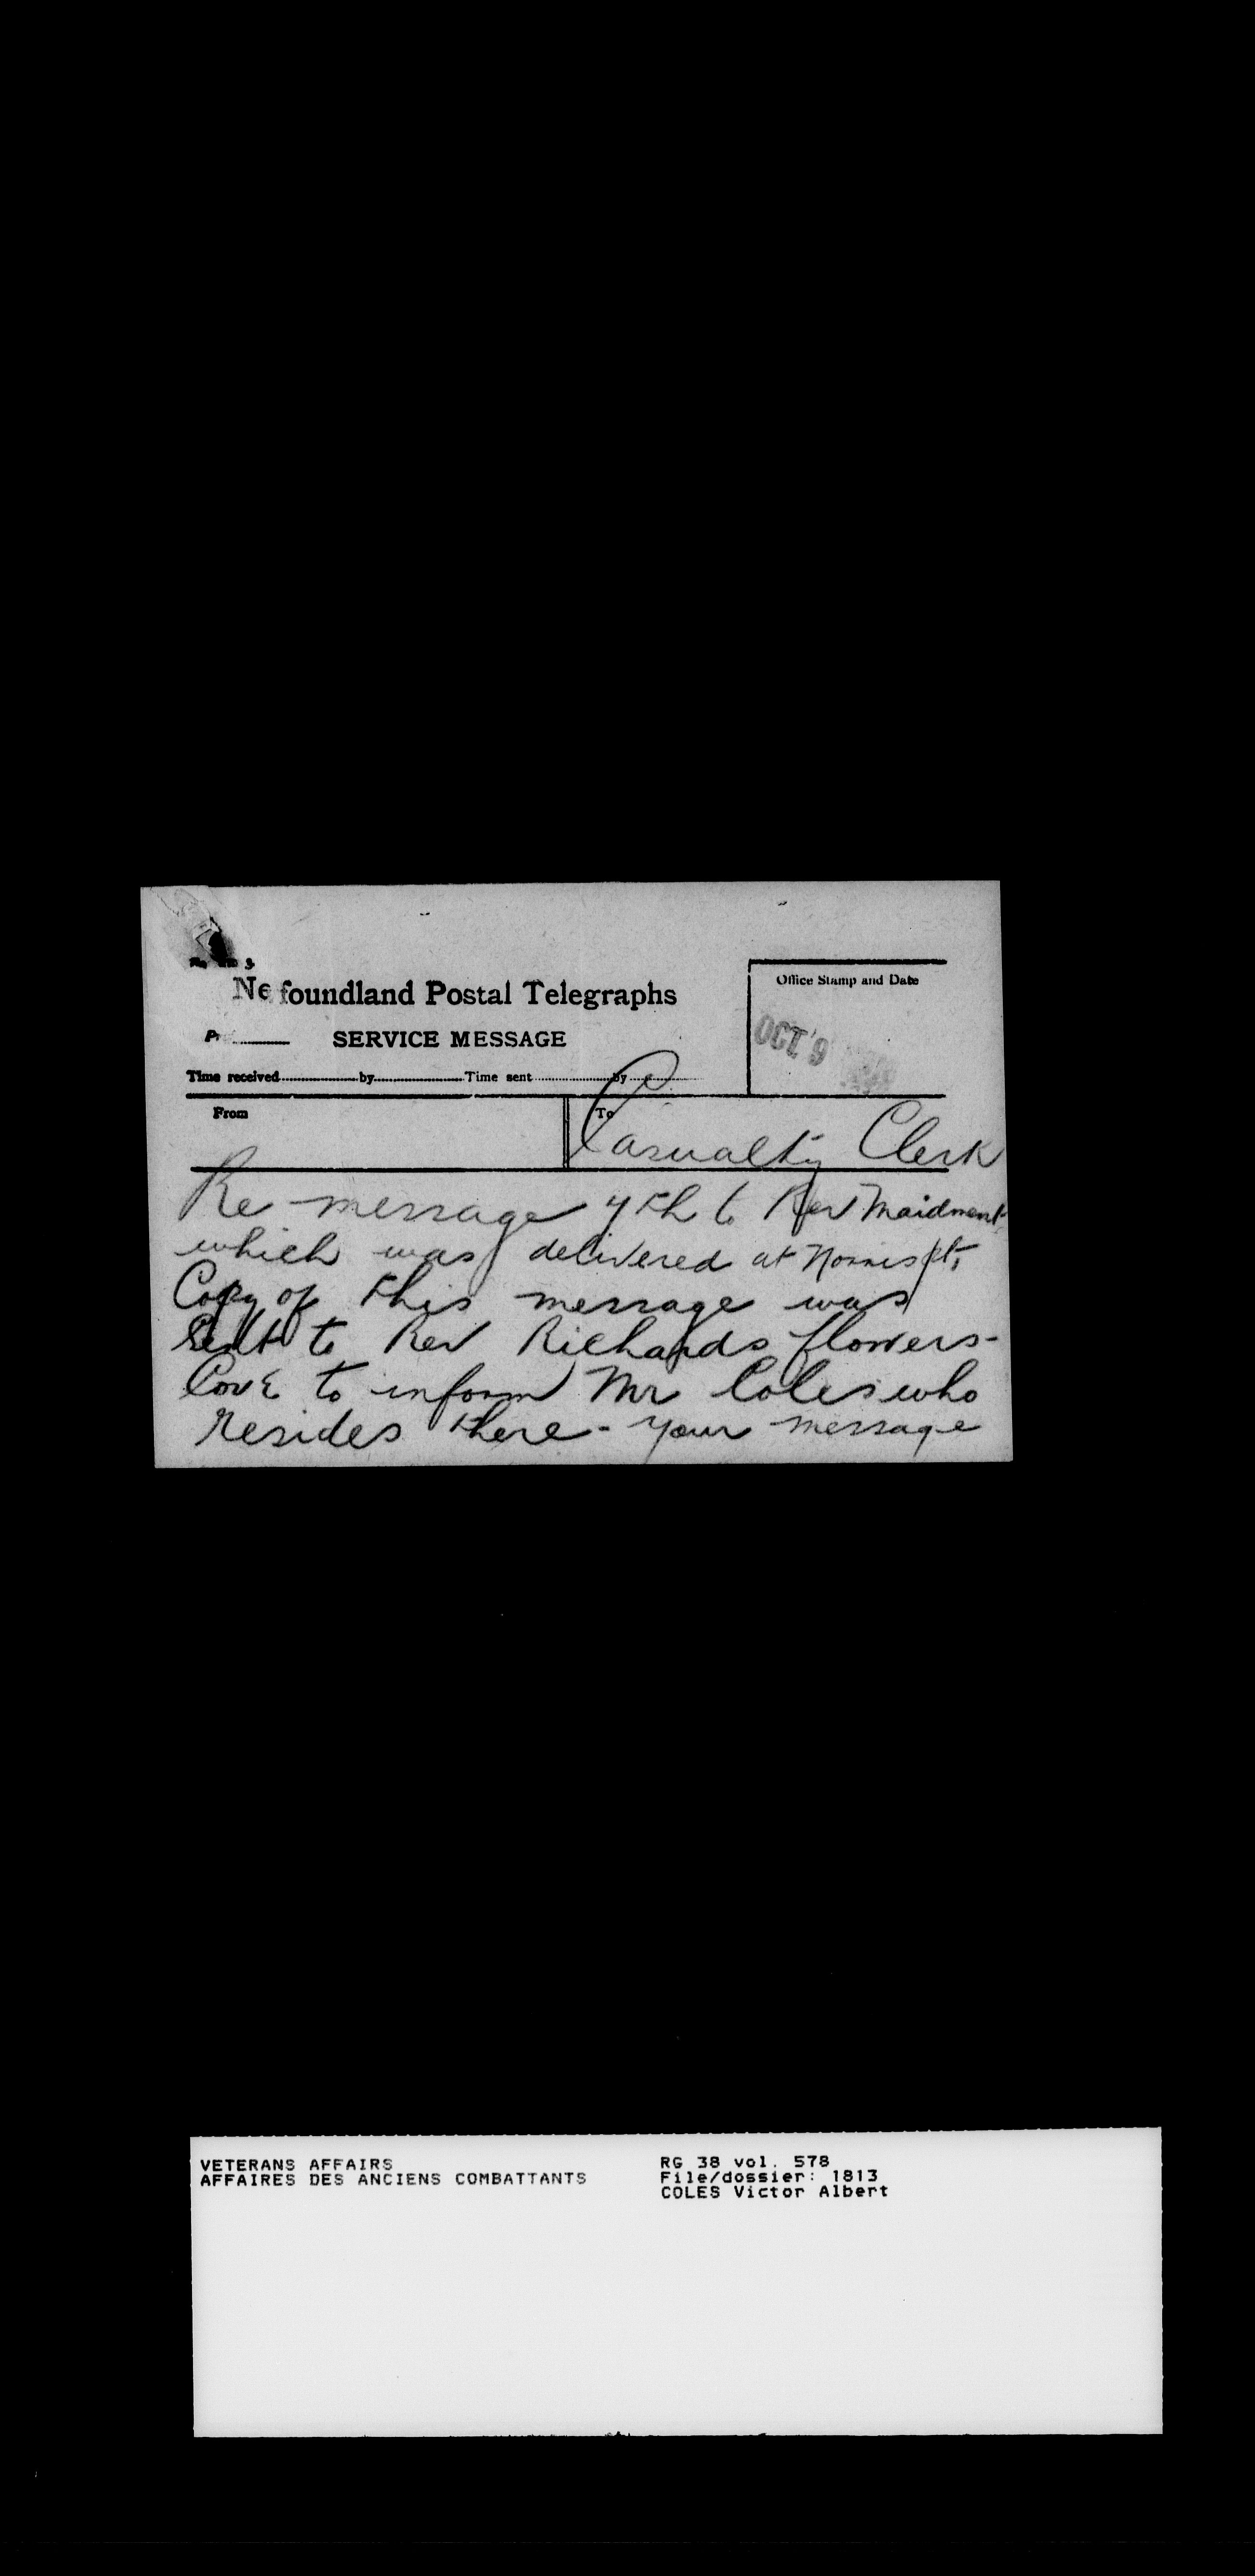 Ne foundland Postal Telegraphs
SERVICE MESSAGE
Office Stamp and Date
OCT 9
Time received by Time sent by
From
To
Casualty Clerk
Re message 4th to Rev Maidment
which was delivered at Norris Pt,
Copy of this message was
sent to Rev Richards flowers-
Cove to inform Mr Coles who
resides there - your message
VETERANS AFFAIRS
AFFAIRES DES ANCIENS COMBATTANTS
RG 38 vol. 578
File/dossier: 1813
COLES Victor Albert